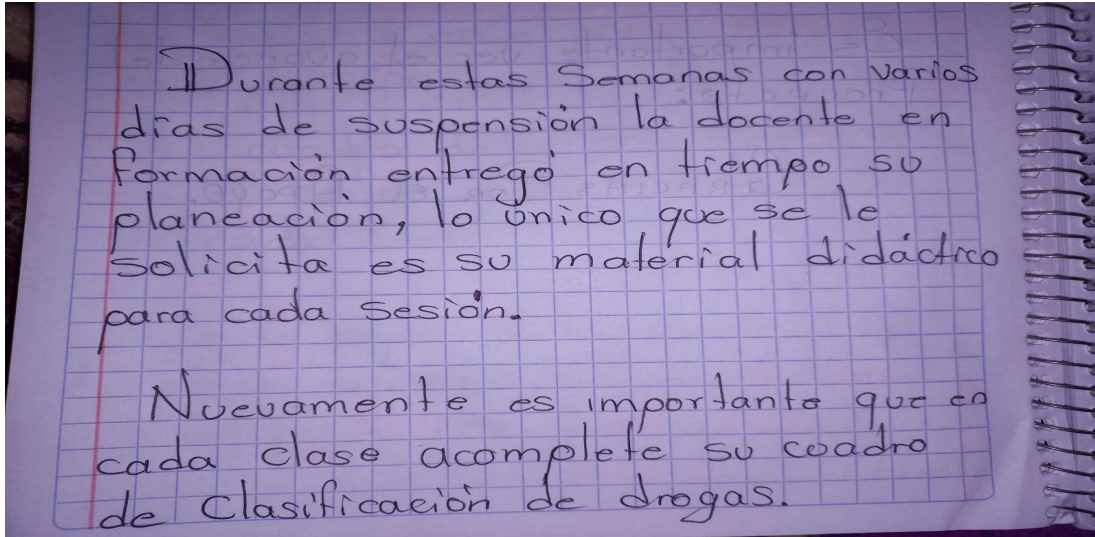 Durante estas Semanas con varios
días de suspensión la docente en
formación entregó en tiempo su
planeación, lo único que se le
solicita es su material didáctico
para cada sesión.
Nuevamente es importante que en
cada clase acomplete su cuadro
de Clasificación de drogas.